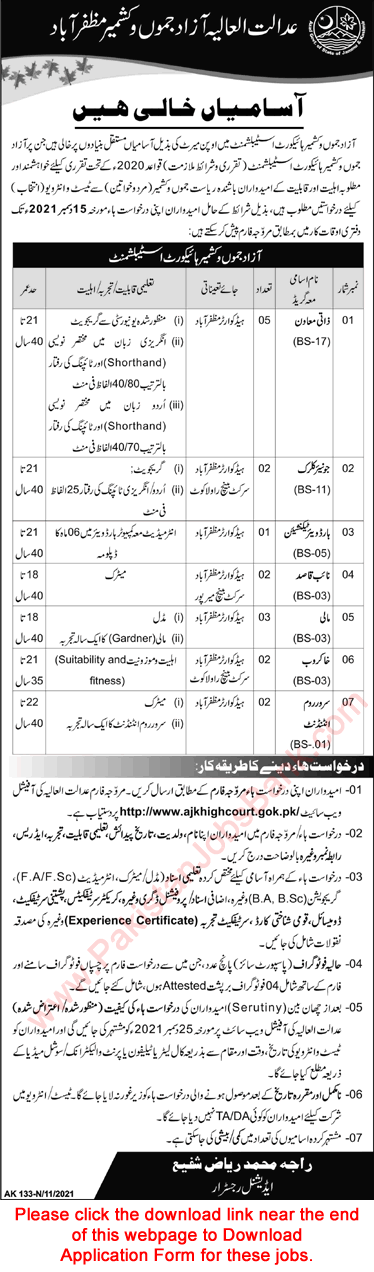 عدالت العالیہ آزاد جموں و کشمیر مظفرآباد
آسامیاں خالی ہیں
آزاد جموں و کشمیر ہائیکورٹ اسٹیبلشمنٹ میں اوپن میرٹ کی بذیل آسامیاں مستقل بنیادوں پر خالی ہیں جن پر آزاد
جموں و کشمیر ہائیکورٹ اسٹیبلشمنٹ (تقرری و شرائط ملازمت) قواعد 2020ء کے تحت تقرری کیلئے خواہشمند اور
مطلوبہ اہلیت اور قابلیت کے امیدواران باشندہ ریاست جموں کشمیر (مرد و خواتین) سے ٹیسٹ و انٹرویو (انتخاب)
کیلئے درخواستیں مطلوب ہیں، بذیل شرائط کے حامل امیدواران اپنی درخواست ہاء مورخہ 15 دسمبر 2021ء تک
دفتری اوقات کار میں بمطابق مروجہ فارم پیش کر سکتے ہیں:
آزاد جموں و کشمیر ہائیکورٹ اسٹیبلشمنٹ
نمبر شمار نام اسامی معہ گریڈ تعداد جائے تعیناتی تعلیمی قابلیت / تجربہ / اہلیت حد عمر
01 ذاتی معاون (BS-17) 05 ہیڈکوارٹر مظفرآباد (i) منظور شدہ یونیورسٹی سے گریجویٹ 21 تا 40 سال
(ii) انگریزی زبان میں مختصر نویسی
(Shorthand) اور ٹائپنگ کی رفتار
بالترتیب 40/80 الفاظ فی منٹ
(iii) اردو زبان میں مختصر نویسی
(Shorthand) اور ٹائپنگ کی رفتار
بالترتیب 40/70 الفاظ فی منٹ
02 جونیئر کلرک (BS-11) 02 ہیڈکوارٹر مظفرآباد سرکٹ بینچ راولاکوٹ (i) گریجویٹ: 21 تا 40 سال
(ii) اردو/انگریزی ٹائپنگ کی رفتار 25 الفاظ
فی منٹ
03 ہارڈویئر ٹیکنیشن (BS-05) 01 ہیڈکوارٹر مظفرآباد انٹرمیڈیٹ معہ کمپیوٹر ہارڈویئر میں 06 ماہ کا ڈپلومہ 21 تا 40 سال
04 نائب قاصد (BS-03) 02 ہیڈکوارٹر مظفرآباد سرکٹ بینچ میرپور میٹرک 18 تا 40 سال
05 مالی (BS-03) 02 ہیڈکوارٹر مظفرآباد (i) مڈل 18 تا 40 سال
(ii) مالی (Gardner) کا ایک سالہ تجربہ
06 خاکروب (BS-03) 02 ہیڈکوارٹر مظفرآباد سرکٹ بینچ راولاکوٹ اہلیت و موزونیت (Suitability and fitness) 21 تا 35 سال
07 سرور روم اٹنڈنٹ (BS-.01) 02 ہیڈکوارٹر مظفرآباد (i) میٹرک 22 تا 40 سال
(ii) سرور روم اٹنڈنٹ کا ایک سالہ تجربہ
درخواست ہاء دینے کا طریقہ کار:
01- امیدواران اپنی درخواست ہاء مروجہ فارم کے مطابق ارسال کریں۔ مروجہ فارم عدالت العالیہ کی آفیشل
ویب سائیٹ http://www.ajkhighcourt.gok.pk/ پر دستیاب ہے۔
02- درخواست ہاء / مروجہ فارم میں امیدواران اپنا نام، ولدیت، تاریخ پیدائش، تعلیمی قابلیت، تجربہ، ایڈریس،
رابطہ نمبر وغیرہ بالوضاحت درج کریں۔
03- درخواست ہاء کے ہمراہ آسامی کیلئے مختص کردہ تعلیمی اسناد (مڈل / میٹرک، انٹرمیڈیٹ (F.A/F.Sc)،
گریجویشن (B.A, B.Sc) وغیرہ، اضافی اسناد / پروفیشنل ڈگری وغیرہ، کریکٹر سرٹیفکیٹس، پشتینی سرٹیفکیٹ،
ڈومیسائل، قومی شناختی کارڈ، سرٹیفکیٹ تجربہ (Experience Certificate) وغیرہ کی مصدقہ
نقولات شامل کی جائیں۔
04- حالیہ فوٹوگراف (پاسپورٹ سائز) پانچ عدد، جن میں سے درخواست فارم پر چسپاں فوٹوگراف سامنے اور
فارم کے ساتھ شامل 04 فوٹوگراف بر پشت Attested ہوں، شامل کئے جائیں گے۔
05- بعد از چھان بین (Serutiny) امیدواران کی درخواست ہاء کی کیفیت (منظور شدہ / اعتراض شدہ)
عدالت العالیہ کی آفیشل ویب سائٹ پر مورخہ 25 دسمبر 2021ء کو مشتہر کی جائیں گی اور امیدواران کو
ٹیسٹ و انٹرویو کی تاریخ، وقت اور مقام سے بذریعہ کال لیٹر یا ٹیلیفون یا پرنٹ و الیکٹرانک / سوشل میڈیا کے
ذریعہ مطلع کیا جائے گا۔
06- نامکمل اور مقررہ تاریخ کے بعد موصول ہونے والی درخواست ہاء کو زیر غور نہ لایا جائے گا۔ ٹیسٹ / انٹرویو میں
شرکت کیلئے امیدواران کو کوئی TA/DA نہیں دیا جائے گا۔
07- مشتہر کردہ اسامیوں کی تعداد میں کمی / بیشی کی جا سکتی ہے۔
راجہ محمد ریاض شفیع
ایڈیشنل رجسٹرار
AK 133-N/11/2021
Please click the download link near the end
of this webpage to Download
Application Form for these jobs.